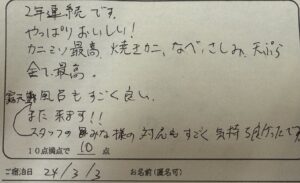 2年連続です。
やっぱりおいしい!
カニミソ最高、焼きカニ、なべ、さしみ、天ぷら
全て最高。
露天風呂もすごく良い。
また来ます!!
スタッフの皆みな様の対応もすごく気持ち良かったです
10点満点で 10 点
ご宿泊日 24/3/3 お名前(匿名可)